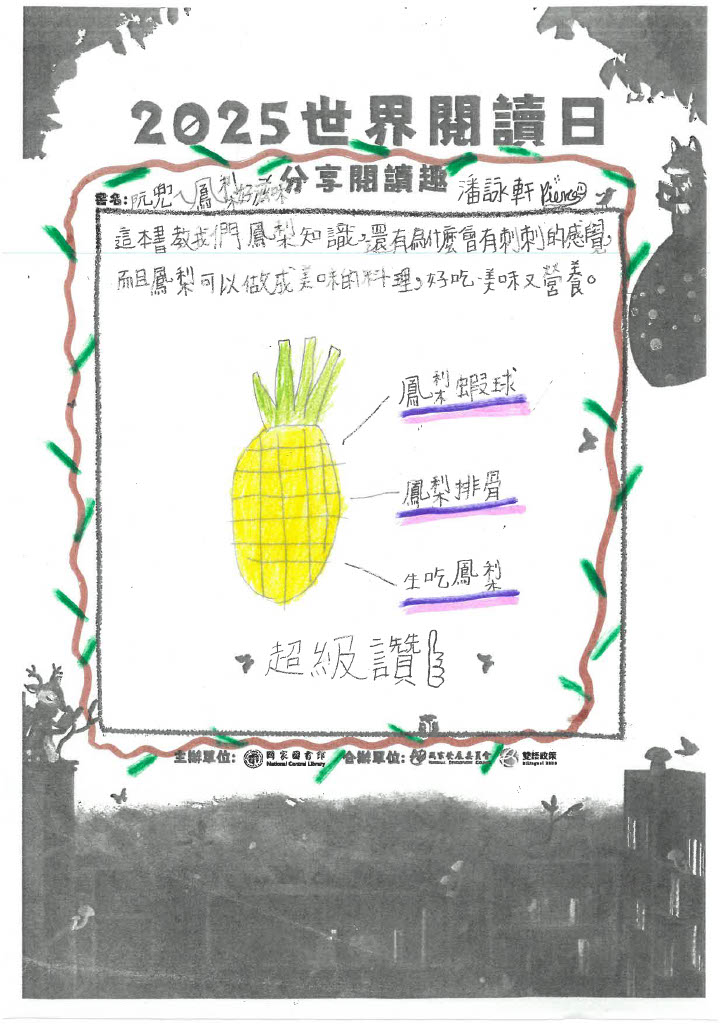 2025世界閱讀日
分享閱讀趣
書名: 阮兜ㄟ鳳梨好滋味 潘詠軒
這本書教我們鳳梨知識,還有為什麼會有刺刺的感覺,
而且鳳梨可以做成美味的料理,好吃、美味又營養。
鳳梨蝦球
鳳梨排骨
生吃鳳梨
超級讚
主辦單位: 國家圖書館 National Central Library 合辦單位: 國家發展委員會 National Development Council 雙語政策 Bilingual 2030